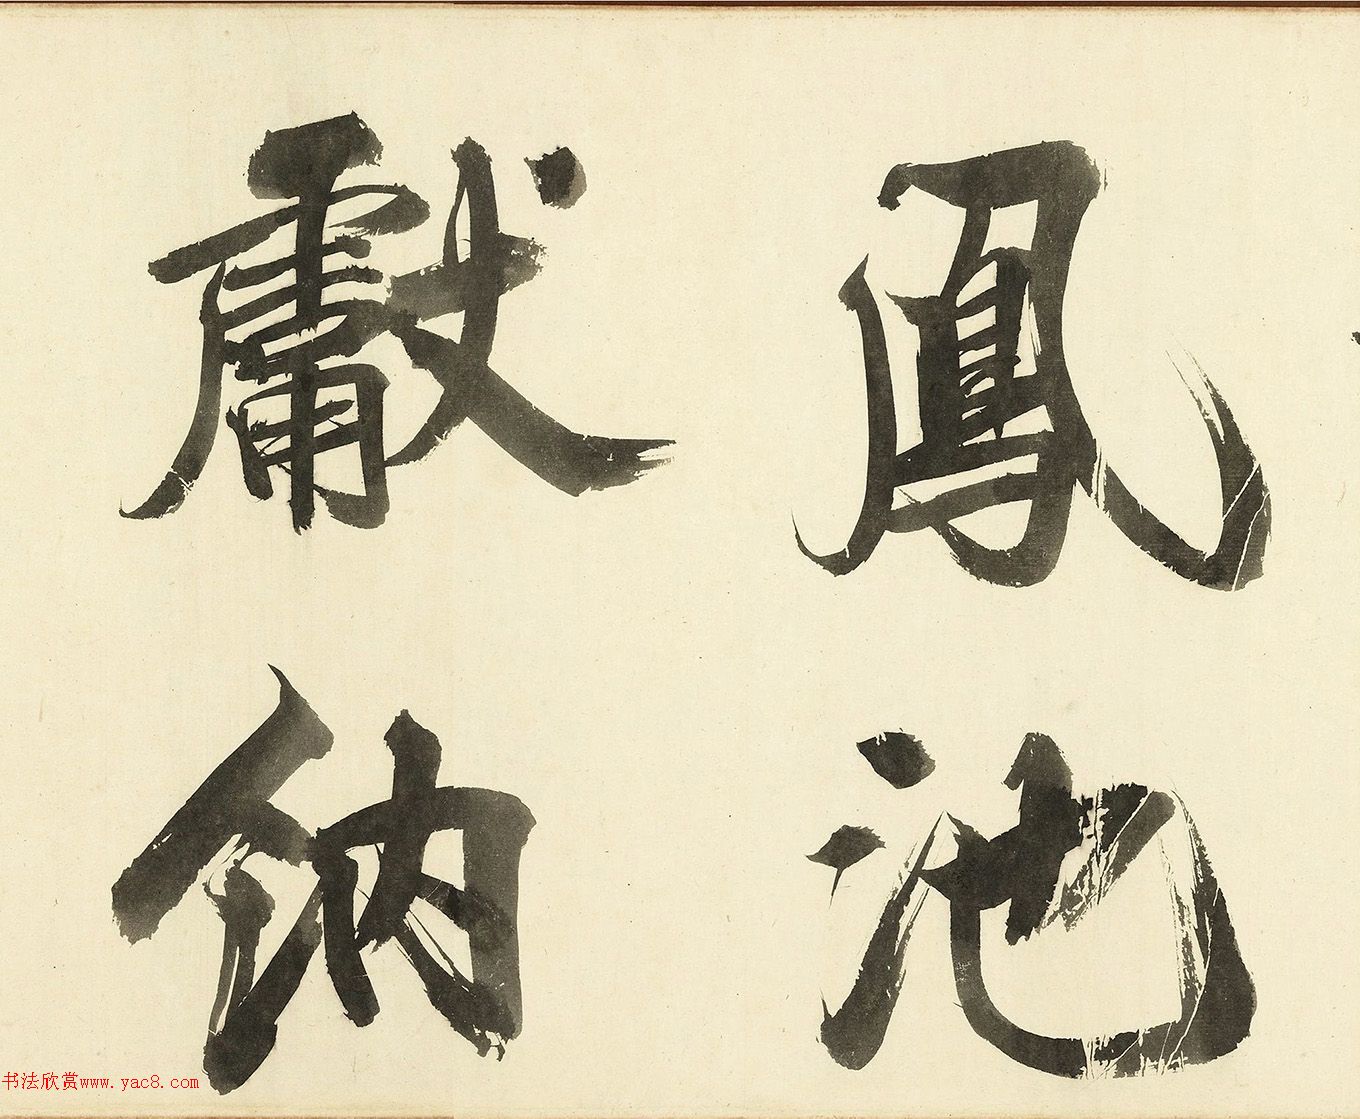 鳳池
獻納
书法欣赏www.yac8.com